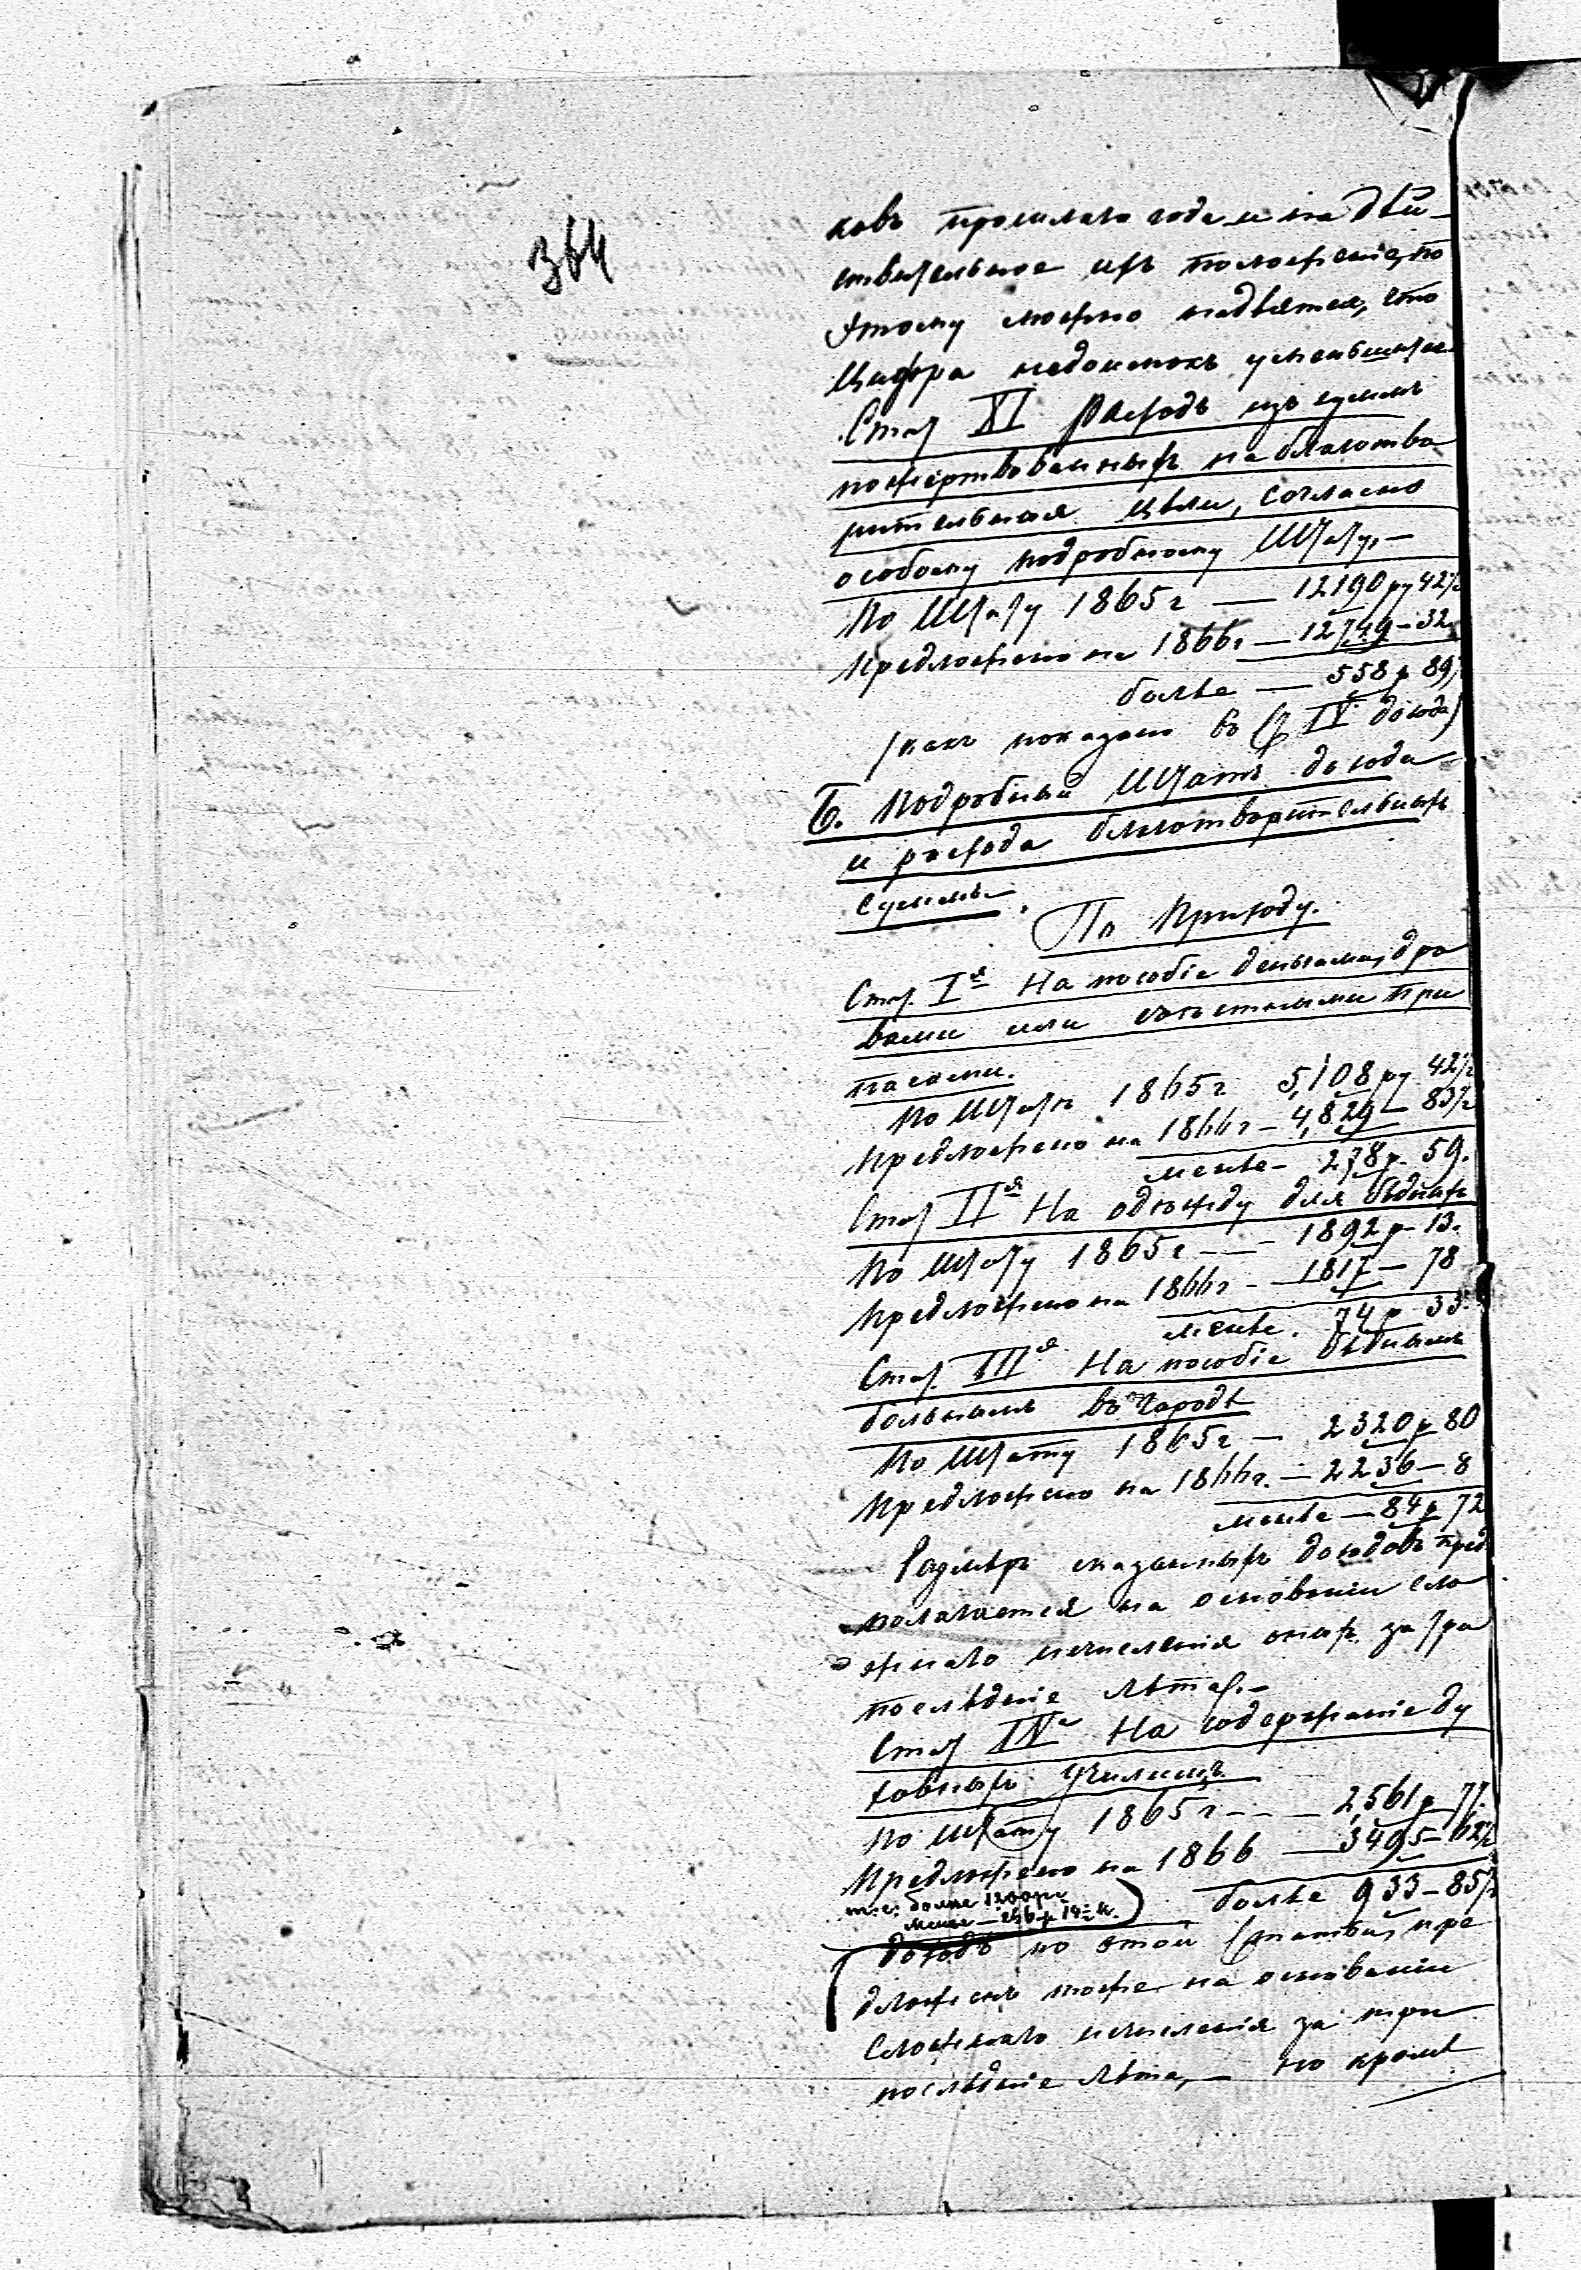 364
ковъ прошлаго года и на дѣй-
ствительное ихъ положеніе, по
этому можно надѣятся, что
цифра недоимокъ уменьшится.
Стат XI Расходъ изъ суммъ
пожертвованныхъ на благотво
рительныя цѣли, согласно
особому подробному Штату,—
По Штату 1865 г — 12190 ру 42½
Предложено на 1866 г — 12749 — 32
болѣе — 558 р 89½
(какъ показано въ § IV дохода)
Б. Подробный Штатъ дохода
и расхода благотворительныхъ
суммъ.
По Приходу.
Стат. Iя На пособіе деньгами, дро
вами или съѣстными при
пасами.
По Штату 1865 г 5,108 ру 42½
Предложено на 1866 г — 4,829 — 83½
менѣе — 278 р. 59.
Стат IIя На одежду для бѣдныхъ
По Штату 1865 г — 1892 р — 13.
Предложено на 1866 г — 1817 — 78
менѣе. 74 р — 33.
Стат. IIIя На пособіе бѣднымъ
больнымъ въ городѣ
По Штату 1865 г — 2320 р 80
Предложено на 1866 г. — 2236 — 8
менѣе — 84 р 72
Размѣръ сказанныхъ доходовъ пред
полагается на основаніи сло
жнаго исчисленія оныхъ за три
послѣдніе лѣта.—
Стат IVя На содержаніе ду
ховныхъ училищъ.
По Штату 1865 г — 2,561 р 77.
Предложено на 1866 — 3495 — 62½
болѣе 933 — 85½
т: е: болѣе 1200 ру
менѣе — 266 р 14½ к.
Доходъ по этой статьи, пре
дложенъ тоже на основаніи
сложнаго исчисленія за три
послѣдніе лѣта,— но кромѣ